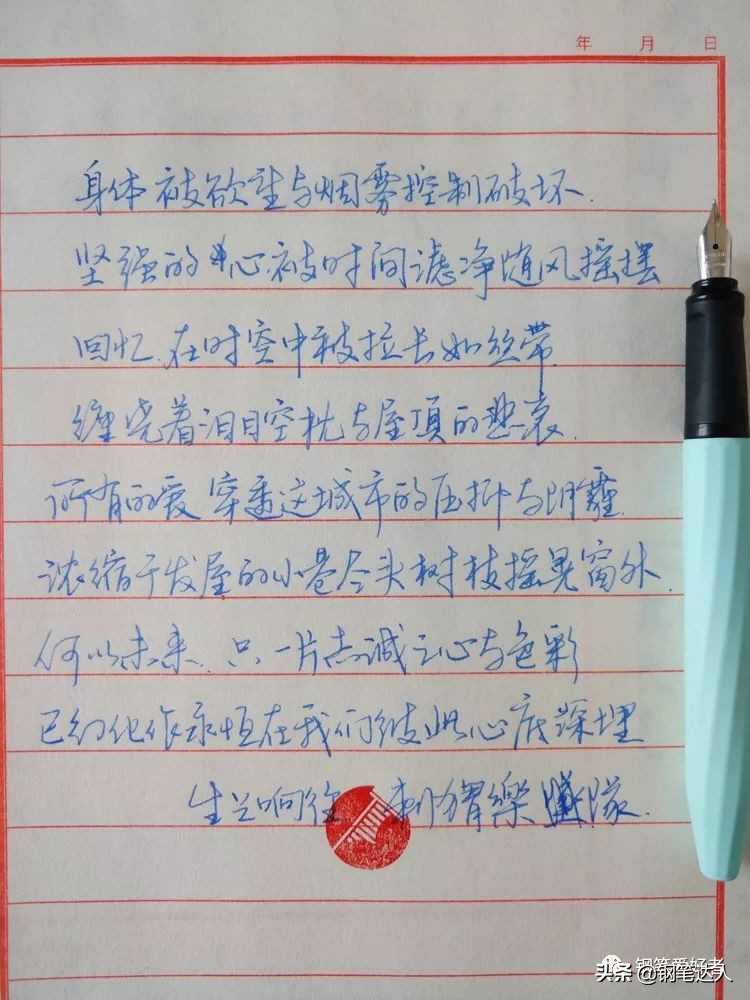 年 月 日
身体被欲望与烟雾控制破坏.
坚强的心被时间滤净随风摇摆
回忆.在时空中被拉长如丝带.
缠绕着泪目空枕与屋顶的悲哀.
所有的爱穿透这城市的压抑与阴霾.
浓缩于发屋的小巷尽头树枝摇晃窗外.
何以未来.只一片赤诚之心与色彩
已幻化作永恒在我们彼此心底深埋
生之响往 刺猬樂隊.
钢笔爱好者
头条 @钢笔达人